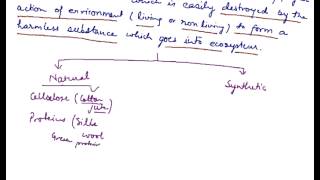 which is easily destroyed by the
action of environment (living or non living) to form a
harmless substance which goes into ecosystem.
Natural Synthetic
Cellulose (Cotton
Jute)
Proteins (Silk
wool
protein